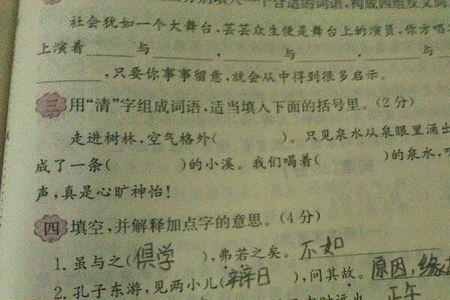 填入一个合适的词语,构成四组反义词
社会犹如一个大舞台,芸芸众生便是舞台上的演员,你方唱
上演着 与 、 与 、 与
,只要你事事留意,就会从中得到很多启示。
三 用“清”字组成词语,适当填入下面的括号里。(2分)
走进树林,空气格外( )。只见泉水从泉眼里涌出
成了一条( )的小溪。我们喝着( )的泉水,
声,真是心旷神怡!
四 填空,并解释加点字的意思。(4分)
1. 虽与之(俱学 ),弗若之矣。不如
2. 孔子东游,见两小儿(辩日 ),问其故。原因,缘
正午